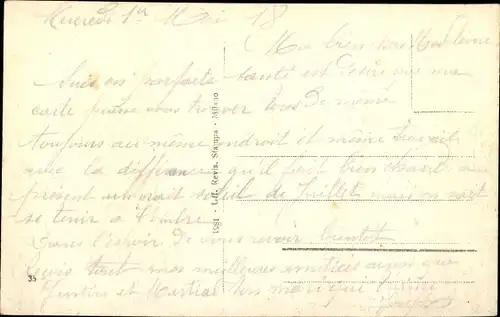 Mercredi 1er Mai 18
Ma bien chère Madeleine
Suis en parfaite santé et désire que ma
carte puisse vous trouver tous de même
toujours au même endroit et même travail
avec la différence qu'il fait bien chaud à
présent un vrai soleil de Juillet
se tenir à l'ombre
Dans l'espoir de vous revoir bientôt
Reçois tout mes meilleures amitiés ainsi que
et ton mari qui t'aime
1981 - Uff. Revis. Stampa - Milano
35